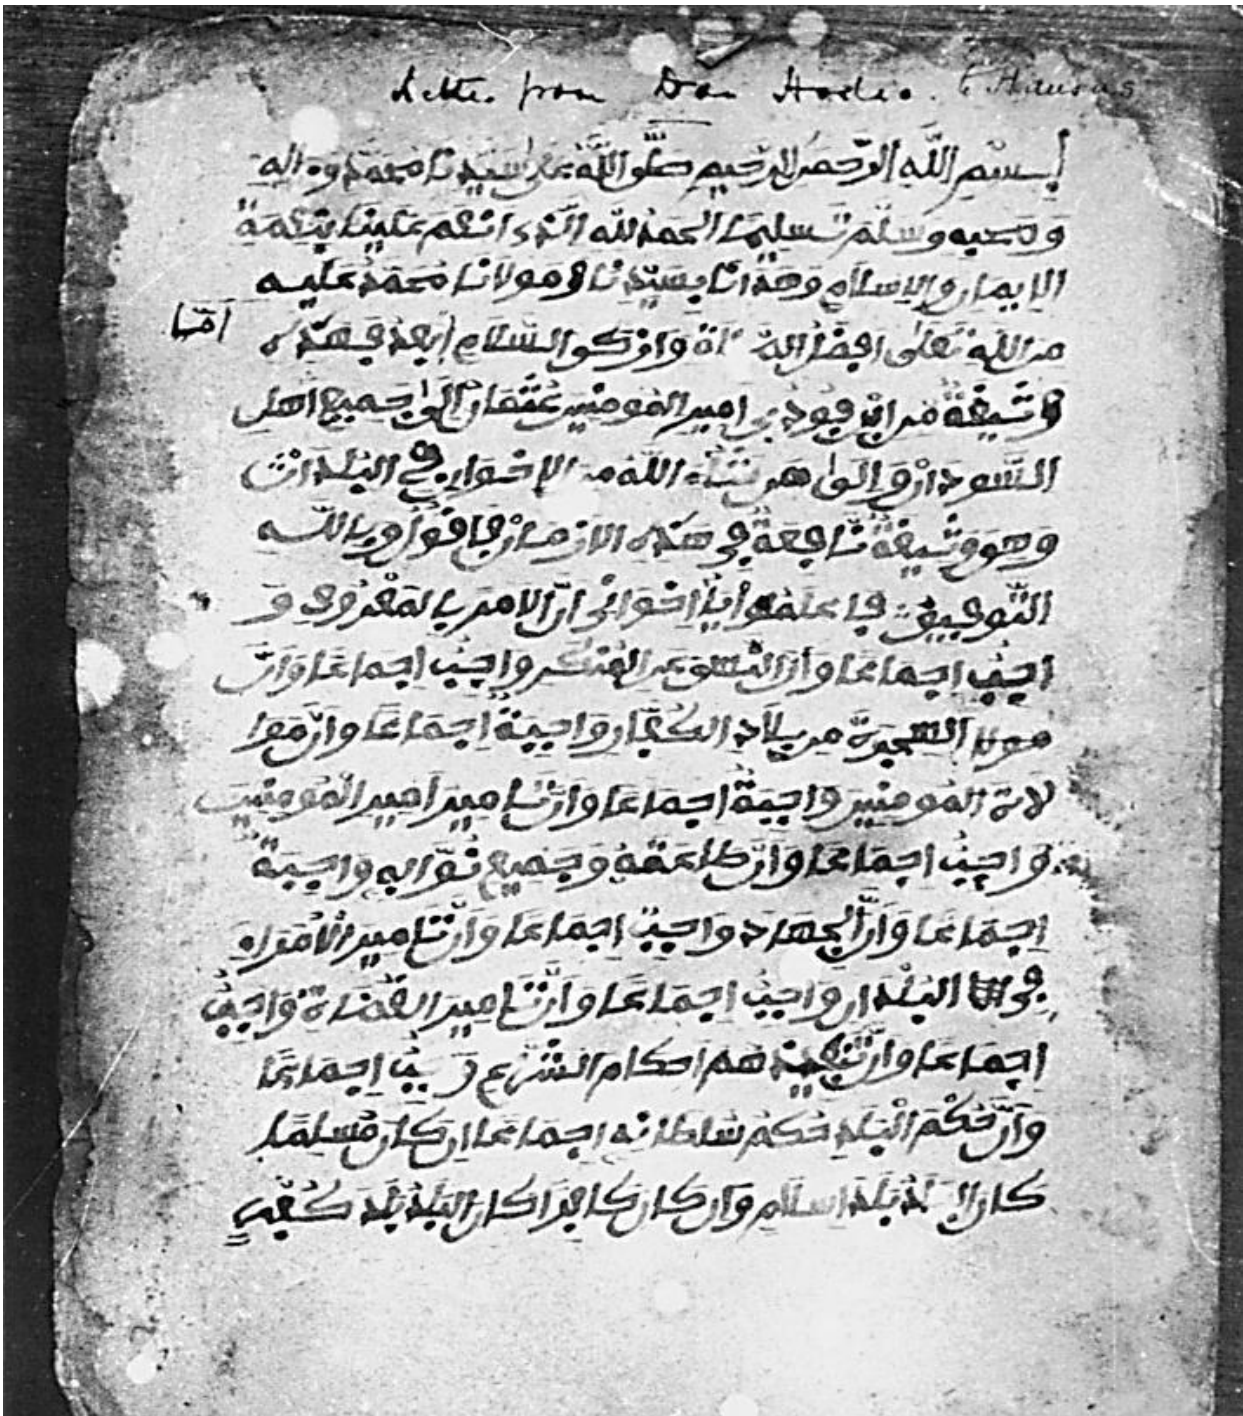 Letter from Dan Hodio. to Hausas
بِسْمِ اللَّهِ الرَّحْمَنِ الرَّحِيمِ صَلَّى اللَّهُ عَلَى سَيِّدِنَا مُحَمَّدٍ وَءَالِهِ
وَصَحْبِهِ وَسَلَّمَ تَسْلِيمًا الحَمْدُ لِلَّهِ الَّذِي أَنْعَمَ عَلَيْنَا بِنِعْمَةِ
الإِيمَانِ وَالإِسْلَامِ وَهَدَانَا بِسَيِّدِنَا وَمَوْلَانَا مُحَمَّدٍ عَلَيْهِ
مِنَ اللَّهِ تَعَلَى أَفْضَلُ وَأَزْكَى السَّلَامِ أَمَّا بَعْدُ فَهَذِهِ
وَثِيقَةٌ مِنِ ابْنِ فُودِي أَمِيرِ المُومِنِينَ عُثْمَانَ إِلَى جَمِيعِ أَهْلِ
السُّودَانِ وَإِلَى مَن شَاءَ اللَّهُ مِنَ الإِخْوَانِ فِي البُلْدَانِ
وَهُوَ وَثِيقَةٌ نَافِعَةٌ فِي هَذِهِ الأَزْمَانِ فَأَقُولُ وَبِاللَّهِ
التَّوْفِيقُ فَاعْلَمُوا يَا إِخْوَانِي أَنَّ الأَمْرَ بِالمَعْرُوفِ وَ
اجِبٌ إِجْمَاعًا وَأَنَّ النَّهْيَ عَنِ المُنْكَرِ وَاجِبٌ إِجْمَاعًا وَأَنَّ
الهِجْرَةَ مِن بِلَادِ الكُفَّارِ وَاجِبَةٌ إِجْمَاعًا وَأَنَّ مُوَا
لَاةَ المُومِنِينَ وَاجِبَةٌ إِجْمَاعًا وَأَنَّ تَامِيرَ أَمِيرِ المُومِنِينَ
وَاجِبٌ إِجْمَاعًا وَأَنَّ طَاعَتَهُ وَجَمِيعِ نُوَّابِهِ وَاجِبَةٌ
إِجْمَاعًا وَأَنَّ الجِهَادَ وَاجِبٌ إِجْمَاعًا وَأَنَّ تَامِيرَ الأُمَرَاءِ
فِي البُلْدَانِ وَاجِبٌ إِجْمَاعًا وَأَنَّ تَامِيرَ القُضَاةِ وَاجِبٌ
إِجْمَاعًا وَأَنَّ تَنْفِيذَهُمْ أَحْكَامَ الشَّرْعِ وَاجِبٌ إِجْمَاعًا
وَأَنَّ حُكْمَ البَلَدِ حُكْمُ سُلْطَانِهِ إِجْمَاعًا إِن كَانَ مُسْلِمًا
كَانَ البَلَدُ بَلَدَ إِسْلَامٍ وَإِن كَانَ كَافِرًا كَانَ البَلَدُ بَلَدَ كُفْرٍ